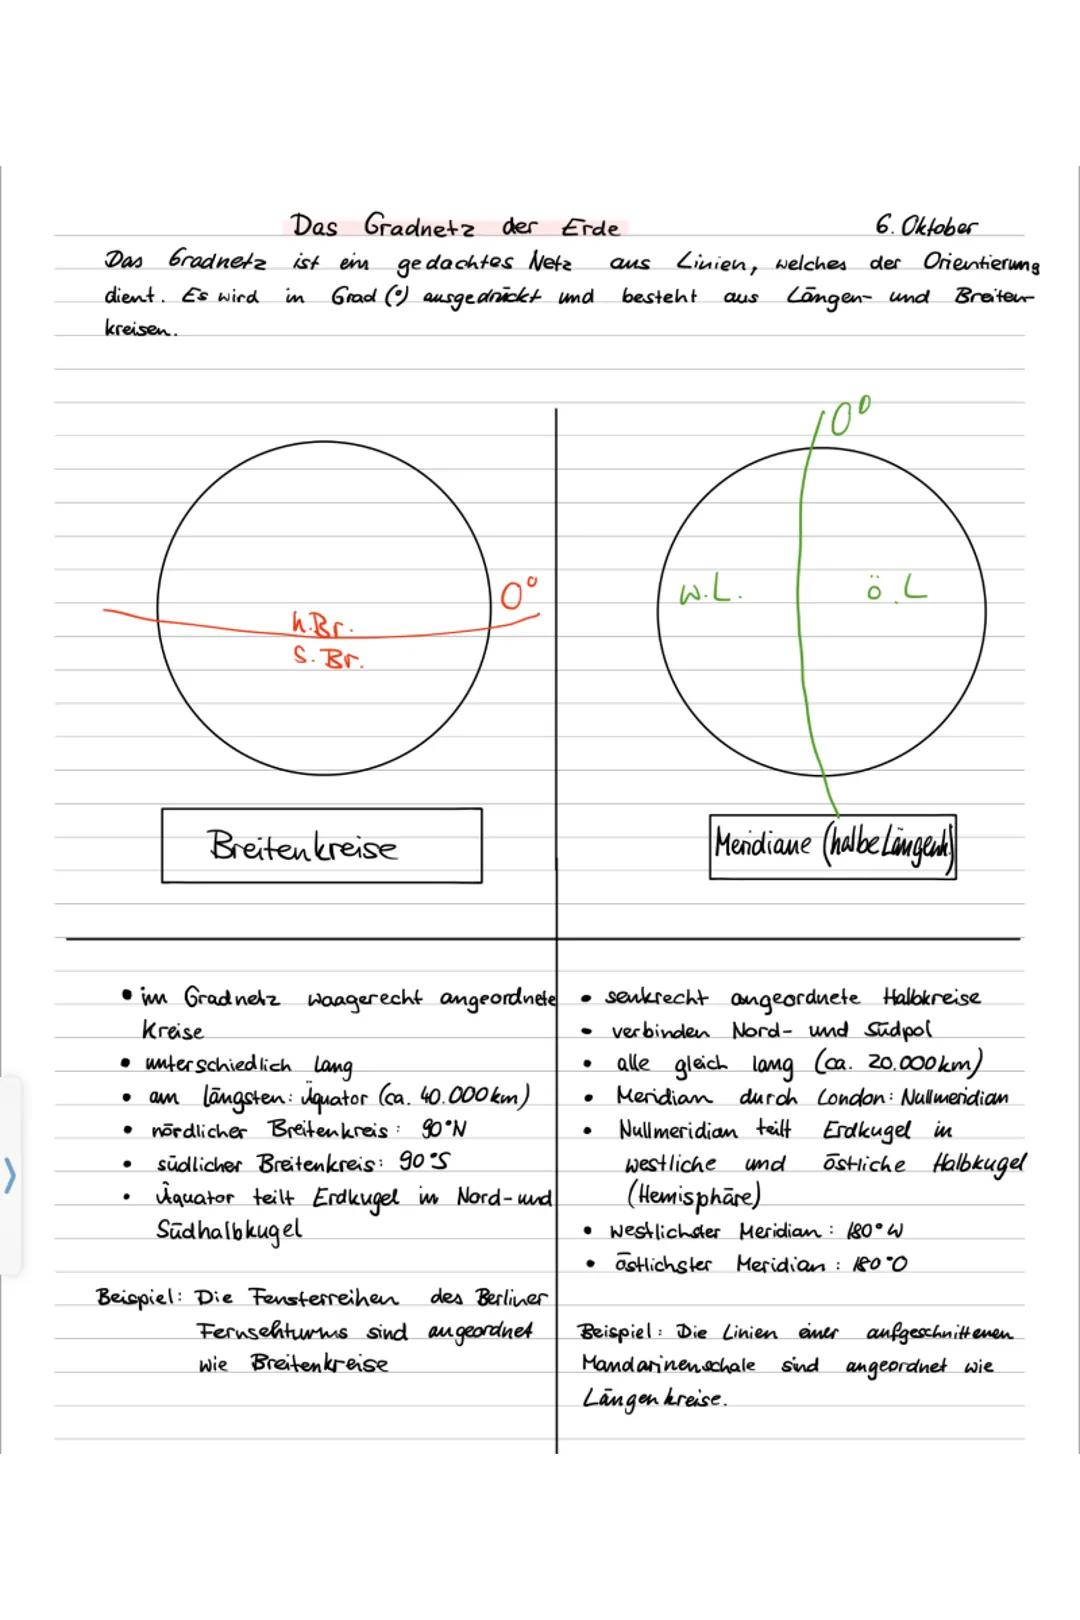 Das Gradnetz der Erde 6. Oktober
Das Gradnetz ist ein gedachtes Netz aus Linien, welches der Orientierung
dient. Es wird in Grad (°) ausgedrückt und besteht aus Längen- und Breiten-
kreisen.
0°
n.Br.
s. Br.
Breitenkreise
0°
w.L. ö.L
Meridiane (halbe Längenk.)
• im Gradnetz waagerecht angeordnete
Kreise
• unterschiedlich lang
• am längsten: Äquator (ca. 40.000km)
• nördlicher Breitenkreis: 90°N
• südlicher Breitenkreis: 90°S
• Äquator teilt Erdkugel in Nord- und
Südhalbkugel
Beispiel: Die Fensterreihen des Berliner
Fernsehturms sind angeordnet
wie Breitenkreise
• senkrecht angeordnete Halbkreise
• verbinden Nord- und Südpol
• alle gleich lang (ca. 20.000km)
• Meridian durch London: Nullmeridian
• Nullmeridian teilt Erdkugel in
westliche und östliche Halbkugel
(Hemisphäre)
• westlichster Meridian: 180°W
• östlichster Meridian: 180°O
Beispiel: Die Linien einer aufgeschnittenen
Mandarinenschale sind angeordnet wie
Längenkreise.